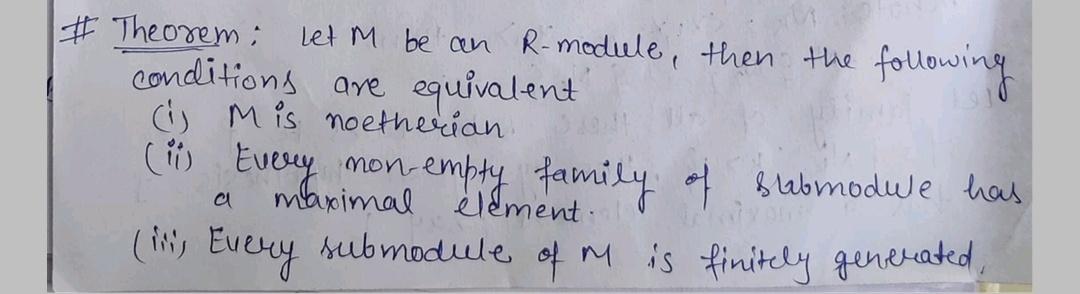 # Theorem: Let M be an R-module, then the following
conditions are equivalent
(i) M is noetherian.
(ii) Every non-empty family of submodule has
a maximal element.
(iii) Every submodule of M is finitely generated.